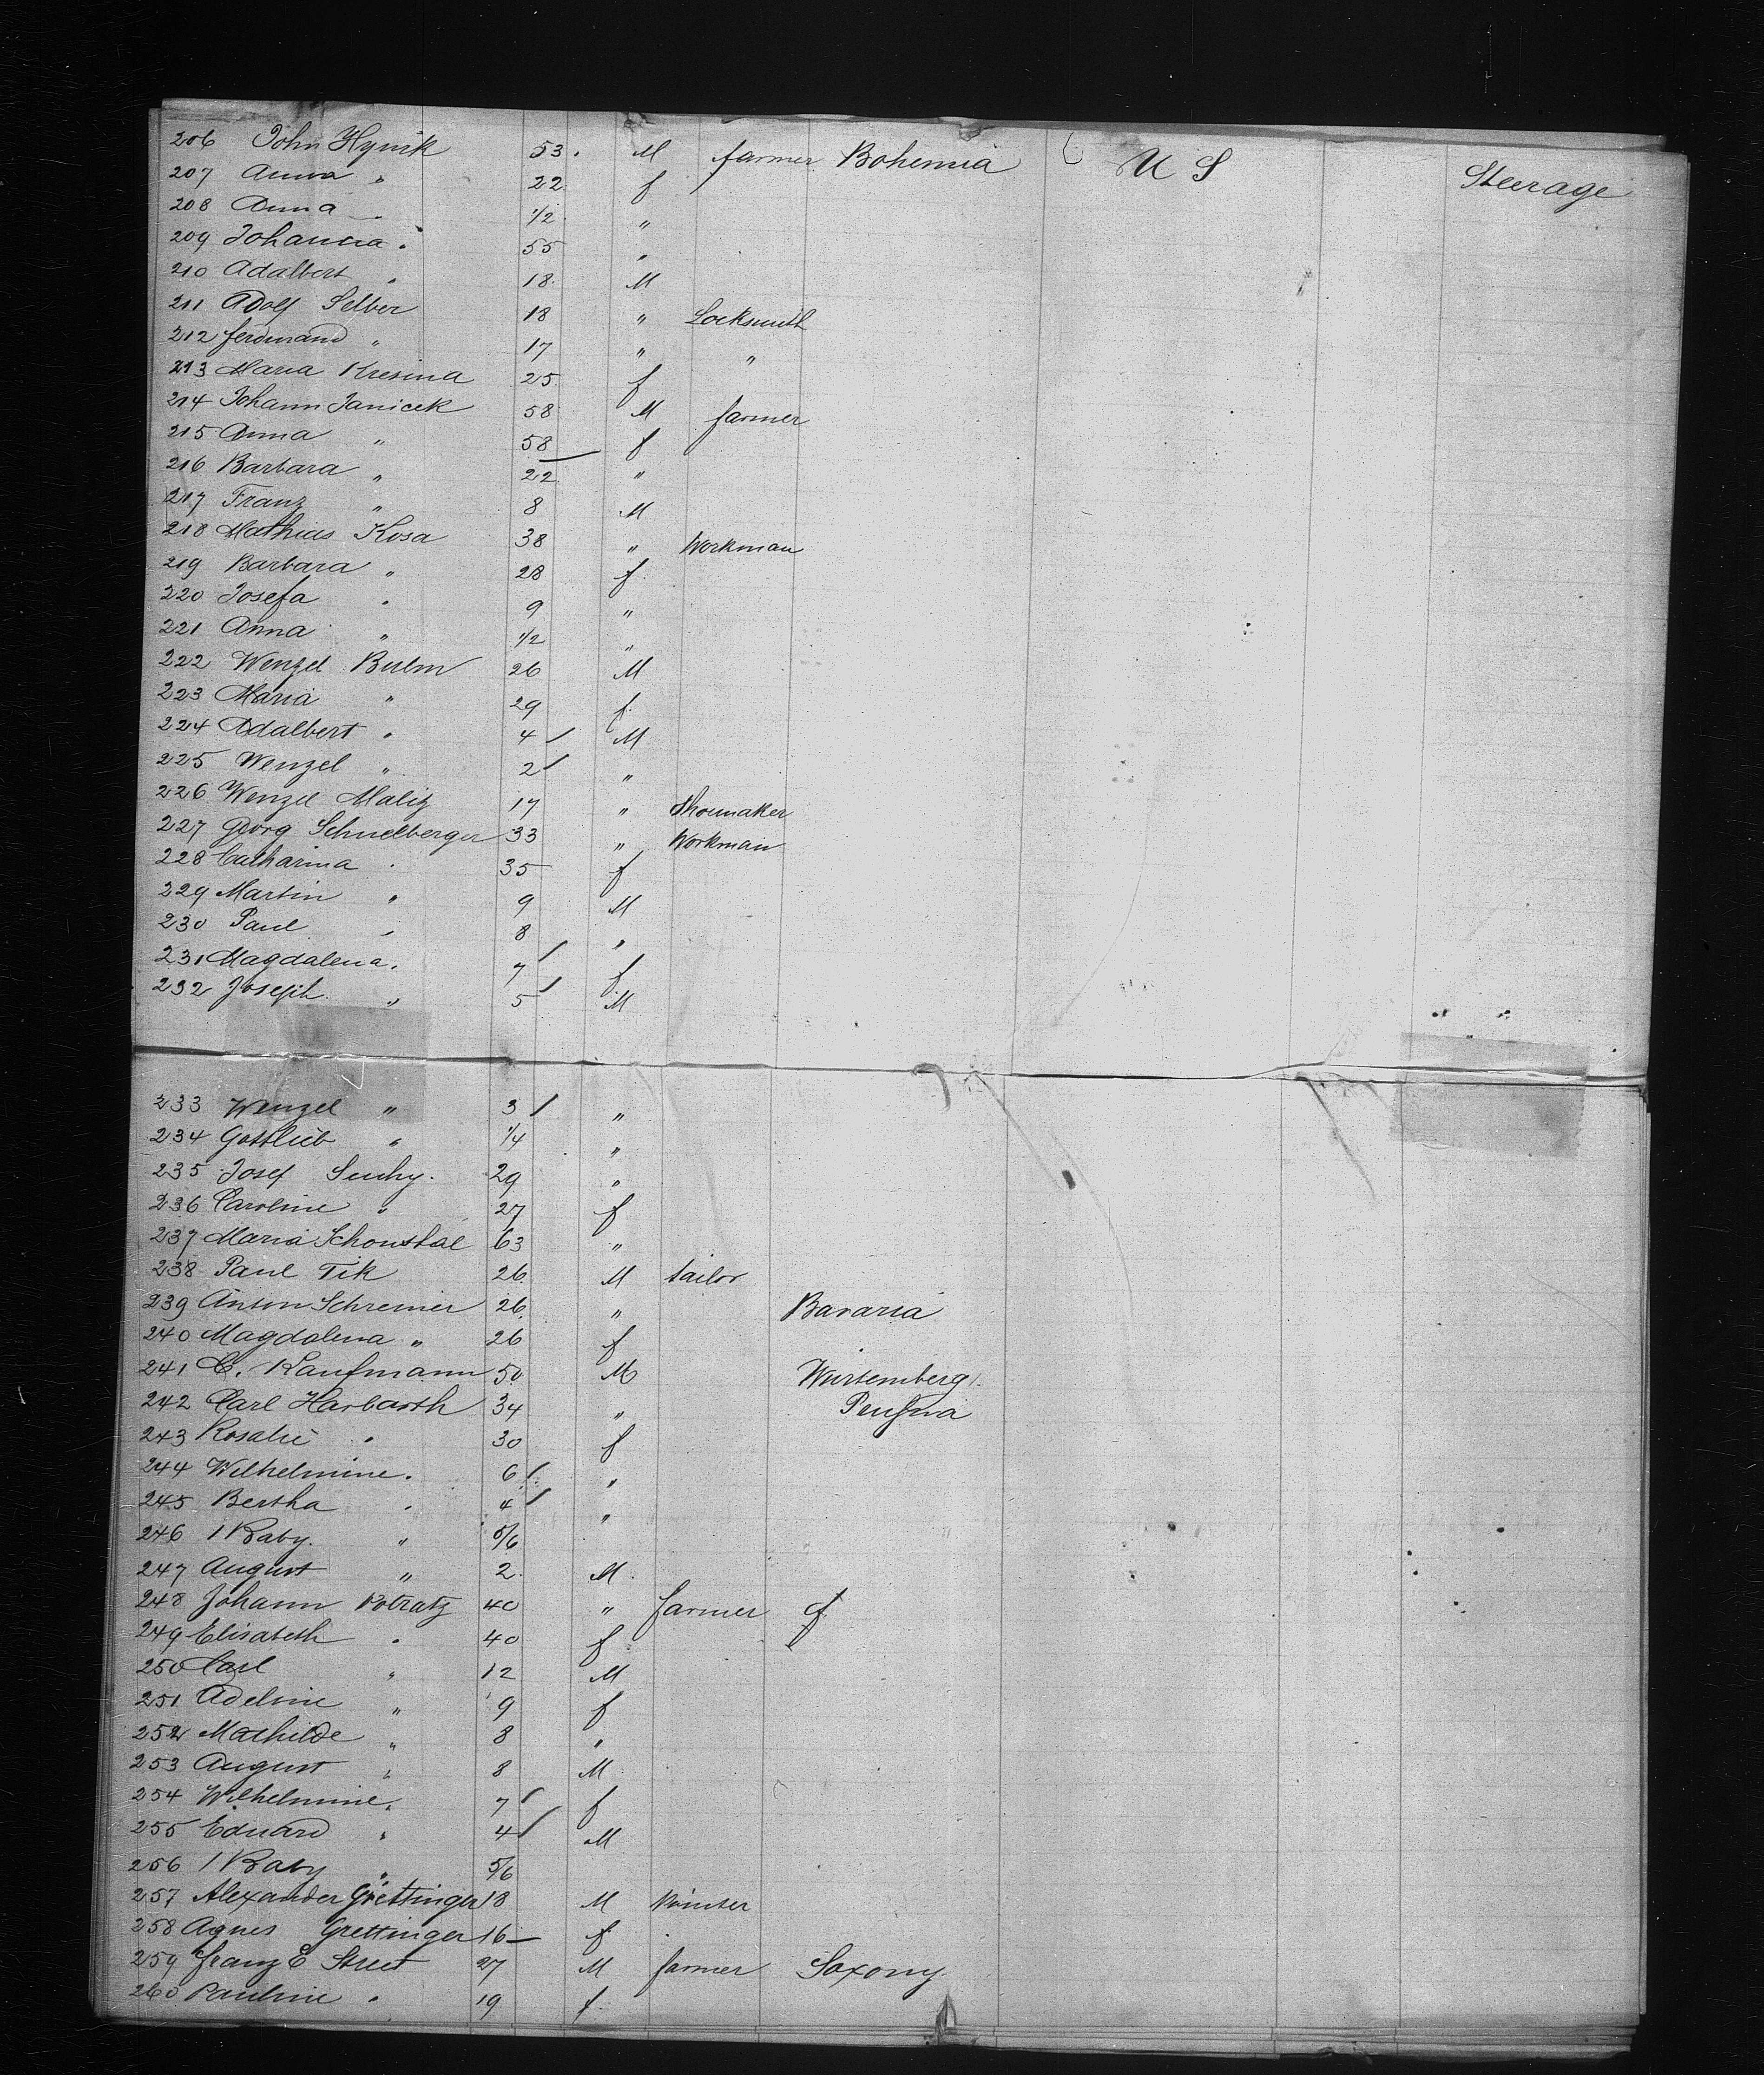 206 John Hynik 53. M farmer Bohemia U S Steerage
207 Anna " 22 f
208 Anna " 1/2 "
209 Johanna " 55 "
210 Adalbert " 18 M
211 Adolf Selber 18 " Locksmith
212 Ferdinand " 17 " "
213 Maria Kresina 25 f
214 Johann Janicek 58 M farmer
215 Anna " 58 f
216 Barbara " 22 "
217 Franz " 8 M
218 Mathias Kosa 38 " Workman
219 Barbara " 28 f
220 Josefa " 9 "
221 Anna " 1/2 "
222 Wenzel Bulm 26 M
223 Maria " 29 f
224 Adalbert " 4 M
225 Wenzel " 2 "
226 Wenzel Maliz 17 " Shoemaker
227 Georg Schnelberger 33 " Workman
228 Catharina " 35 f
229 Martin " 9 M
230 Paul " 8 "
231 Magdalena " 7 f
232 Joseph " 5 M
233 Wenzel " 3 "
234 Gottlieb " 1/4 "
235 Josef Suchy 29 "
236 Caroline " 27 f
237 Maria Schoustal 63 "
238 Paul Tik 26 M tailor
239 Anton Schreiner 26 " Bavaria
240 Magdalena " 26 f
241 C. Kaufmann 50 M Wurtemberg
242 Carl Harbarth 34 "
243 Rosalie " 30 f
244 Wilhelmine " 6 "
245 Bertha " 4 "
246 1 Baby " 5/6
247 August " 2 M
248 Johann Potratz 40 " farmer
249 Elisabeth " 40 f
250 Carl " 12 M
251 Adeline " 9 f
252 Mathilde " 8 "
253 August " 8 M
254 Wilhelmine " 7 f
255 Eduard " 4 M
256 1 Baby " 5/6
257 Alexander Grettinger 18 M
258 Agnes Grettinger 16 f
259 Franz E Street 27 M farmer Saxony
260 Pauline " 19 f